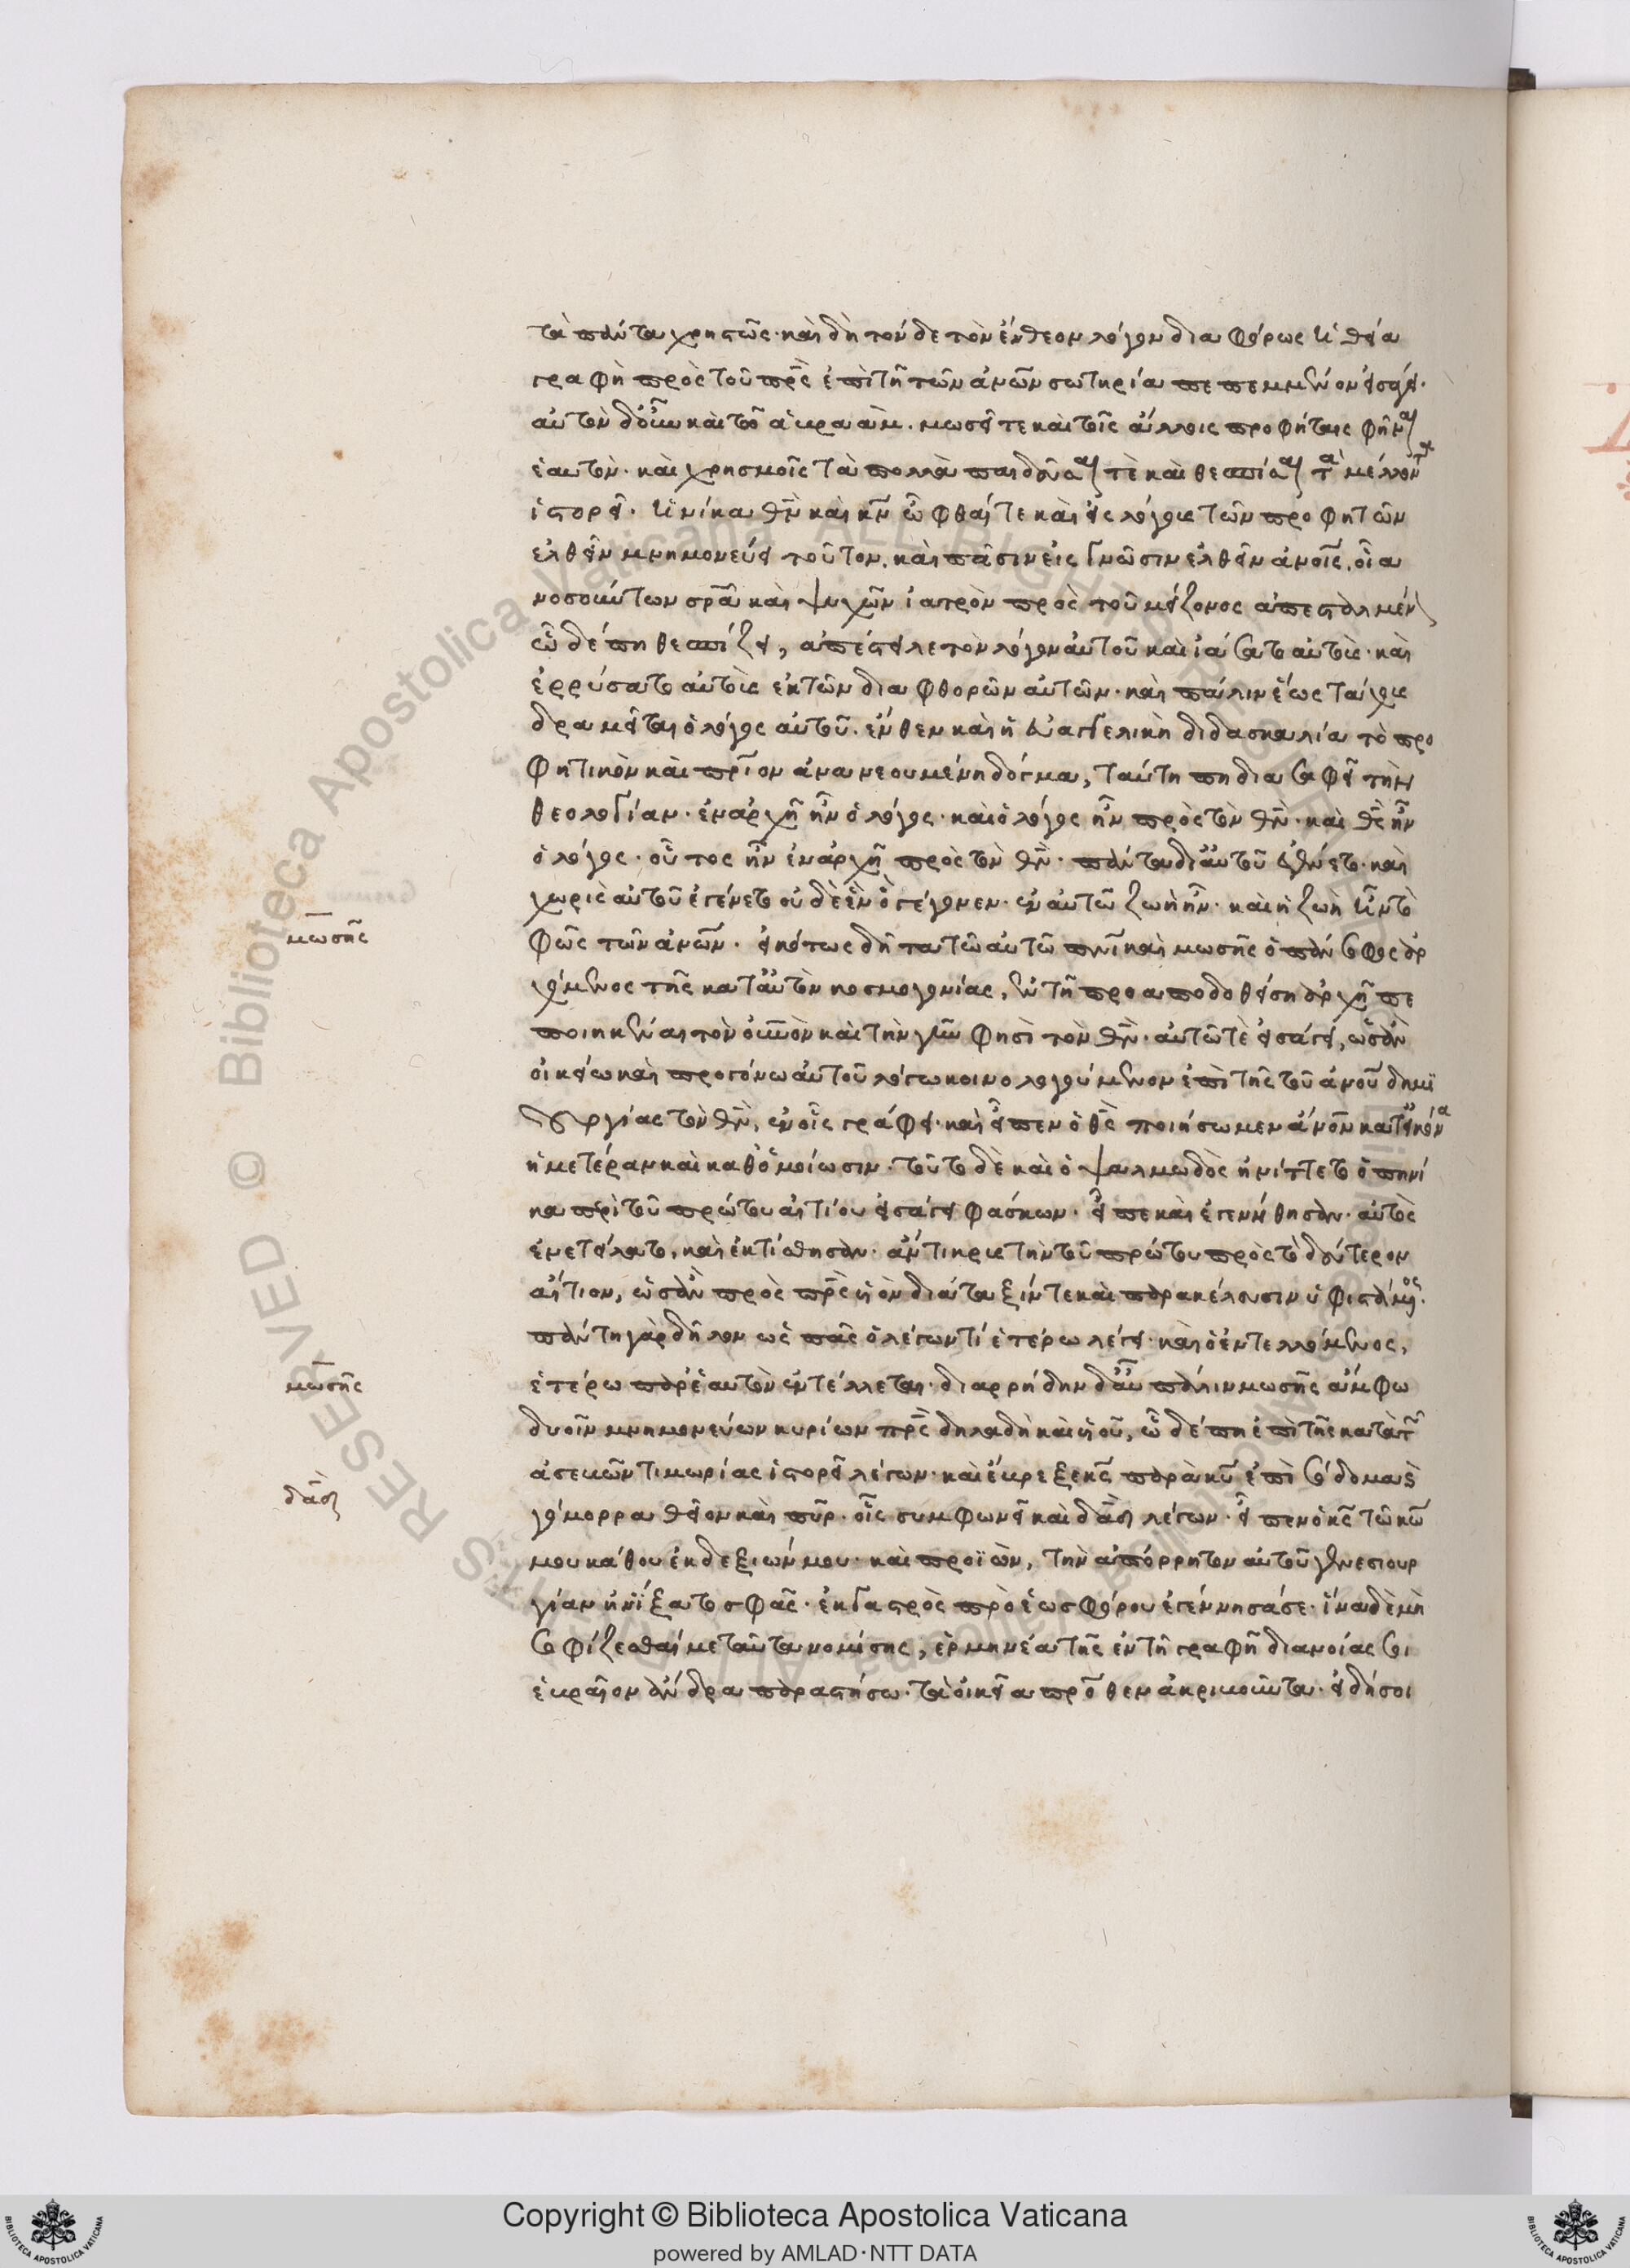 τὰ πάντα χρηστῶς· καὶ δὴ τόνδε τὸν ἔνθεον λόγον διαφόρως ἡ θεία
γραφὴ πρὸς τοῦ πρς ἐπὶ τῆ τῶν ἀνων σωτηρία πεπεμμένον εἰσάγει.
αὐτὸν δ' οὖν καὶ τῶ ἁβραὰμ. μωσεῖ τε καὶ τοῖς ἄλλοις προφήταις φῆναι
ἑαυτὸν. καὶ χρησμοῖς τὰ πολλὰ παιδεῦσαι τὲ καὶ θεσπίσαι τὰ μέλλοντα
ἱστορεῖ. ἡνίκα θν καὶ κν ὦφθαί τε καὶ εἰς λόγους τῶν προφητῶν
ἐλθεῖν μνημονεύει τοῦτον. καὶ πᾶσιν εἰς γνῶσιν ἐλθεῖν ἀνοις. οἷα
νοσούντων σρα καὶ ψυχῶν ἰατρὸν πρὸς τοῦ μείζονος ἀπεσταλμένον
ὧδέ πη θεσπίζει, ἀπέστειλε τὸν λόγον αὐτοῦ καὶ ἰάσατο αὐτοὺς. καὶ
ἐρρύσατο αὐτοὺς ἐκ τῶν διαφθορῶν αὐτῶν. καὶ πάλιν ἕως τάχους
δραμεῖται ὁ λόγος αὐτοῦ. ἔνθεν καὶ ἡ εὐαγγελικὴ διδασκαλία τὸ προ
φητικὸν καὶ πριον ἀνανεουμένη δόγμα, ταύτη πη διασαφεῖ τὴν
θεολογίαν. ἐν ἀρχῆ ἦν ὁ λόγος. καὶ ὁ λόγος ἦν πρὸς τὸν θν. καὶ θς ἦν
ὁ λόγος. οὗτος ἦν ἐν ἀρχῆ πρὸς τὸν θν. πάντα δι' αὐτοῦ ἐγένετο. καὶ
χωρὶς αὐτοῦ ἐγένετο οὐδὲ ἓν ὃ γέγονεν. ἐν αὐτῶ ζωὴ ἦν. καὶ ἡ ζωὴ ἦν τὸ
μωσῆς
φῶς τῶν ἀνων. εἰκότως δῆτα τῶ αὐτῶ πνι καὶ μωσῆς ὁ πάνσοφος ἀρ
χόμενος τῆς κατ' αὐτὸν κοσμογονίας, ἐν τῆ προαποδοθείση ἀρχῆ πε
ποιηκέναι τὸν οὐνον καὶ τὴν γῆν φησὶ τὸν θν. αὐτῶ τὲ εἰσάγει, ὡσὰν
οἰκείω καὶ προγόνω αὐτοῦ λόγω κοινολογούμενον ἐπὶ τῆς τοῦ ἀνου δημι
ουργίας τὸν θν, ἐν οἷς γράφει. καὶ εἶπεν ὁ θς ποιήσωμεν ἀνον κατ' εἰκόνα
ἡμετέραν καὶ καθ' ὁμοίωσιν. τοῦτο δὲ καὶ ὁ ψαλμωδὸς ἠνίττετο ὁπηνί
κα περὶ τοῦ πρώτου αἰτίου εἰσάγει φάσκων. εἶπε καὶ ἐγεννήθησαν. αὐτὸς
ἐνετείλατο, καὶ ἐκτίσθησαν. ἄντικρυς τὴν τοῦ πρώτου πρὸς τὸ δεύτερον
αἴτιον, ὡσὰν πρὸς πρς υἱὸν διάταξίν τε καὶ παρακέλευσιν ὑφιστάμενος.
πάντη γὰρ δῆλον ὡς πᾶς ὁ λέγων τί ἑτέρω λέγει. καὶ ὁ ἐντελλόμενος,
μωσῆς
ἑτέρω παρ' ἑαυτὸν ἐντέλλεται. διαρρήδην δ' οὖν πάλιν μωσῆς ἄμφω
δυοῖν μνημονεύων κυρίων πρς δηλαδὴ καὶ υἱοῦ, ὧδέ πη ἐπὶ τῆς κατὰ τῶν
ἀσεβῶν τιμωρίας ἱστορεῖ λέγων. καὶ ἔβρεξε κς παρὰ κυ ἐπὶ σόδομα καὶ
δαδ
γόμορρα θεῖον καὶ πῦρ. οἷς συμφωνεῖ καὶ δαδ λέγων. εἶπεν ὁ κς τῶ κω
μου κάθου ἐκ δεξιῶν μου. καὶ προϊὼν, τὴν ἀπόρρητον αὐτοῦ γενεσιουρ
γίαν ἠνίξατο σφας. ἐκ γαστρὸς πρὸ ἑωσφόρου ἐγέννησά σε. ἵνα δὲ μὴ
σοφίζεσθαί με ταῦτα νομίσης, ἑρμηνέα τῆς ἐν τῆ γραφῆ διανοίας σοι
ἑβραῖον ἄνδρα παραστήσω. τὰ οἰκεῖα προθεν ἀκριβοῦντα. εἰδήσοι